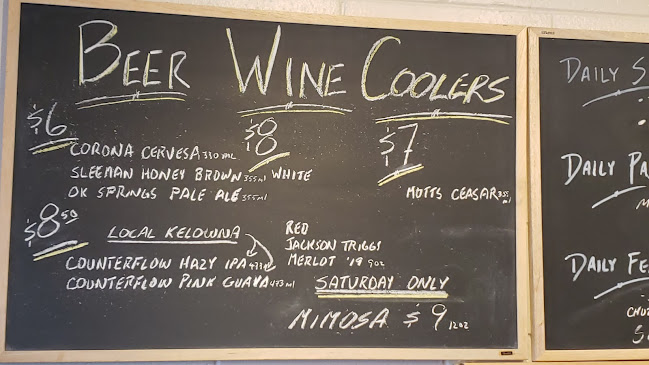 BEER WINE COOLERS
$6 $8 $7
CORONA CERVESA 330 ML
SLEEMAN HONEY BROWN 355ml WHITE
OK SPRINGS PALE ALE 355ml MOTTS CEASAR 355 ml
$8.50 LOCAL KELOWNA RED
JACKSON TRIGGS
COUNTERFLOW HAZY IPA 473ml MERLOT '19 9oz
COUNTERFLOW PINK GUAVA 473ml SATURDAY ONLY
MIMOSA $9 12oz
DAILY S
DAILY PA
DAILY FE